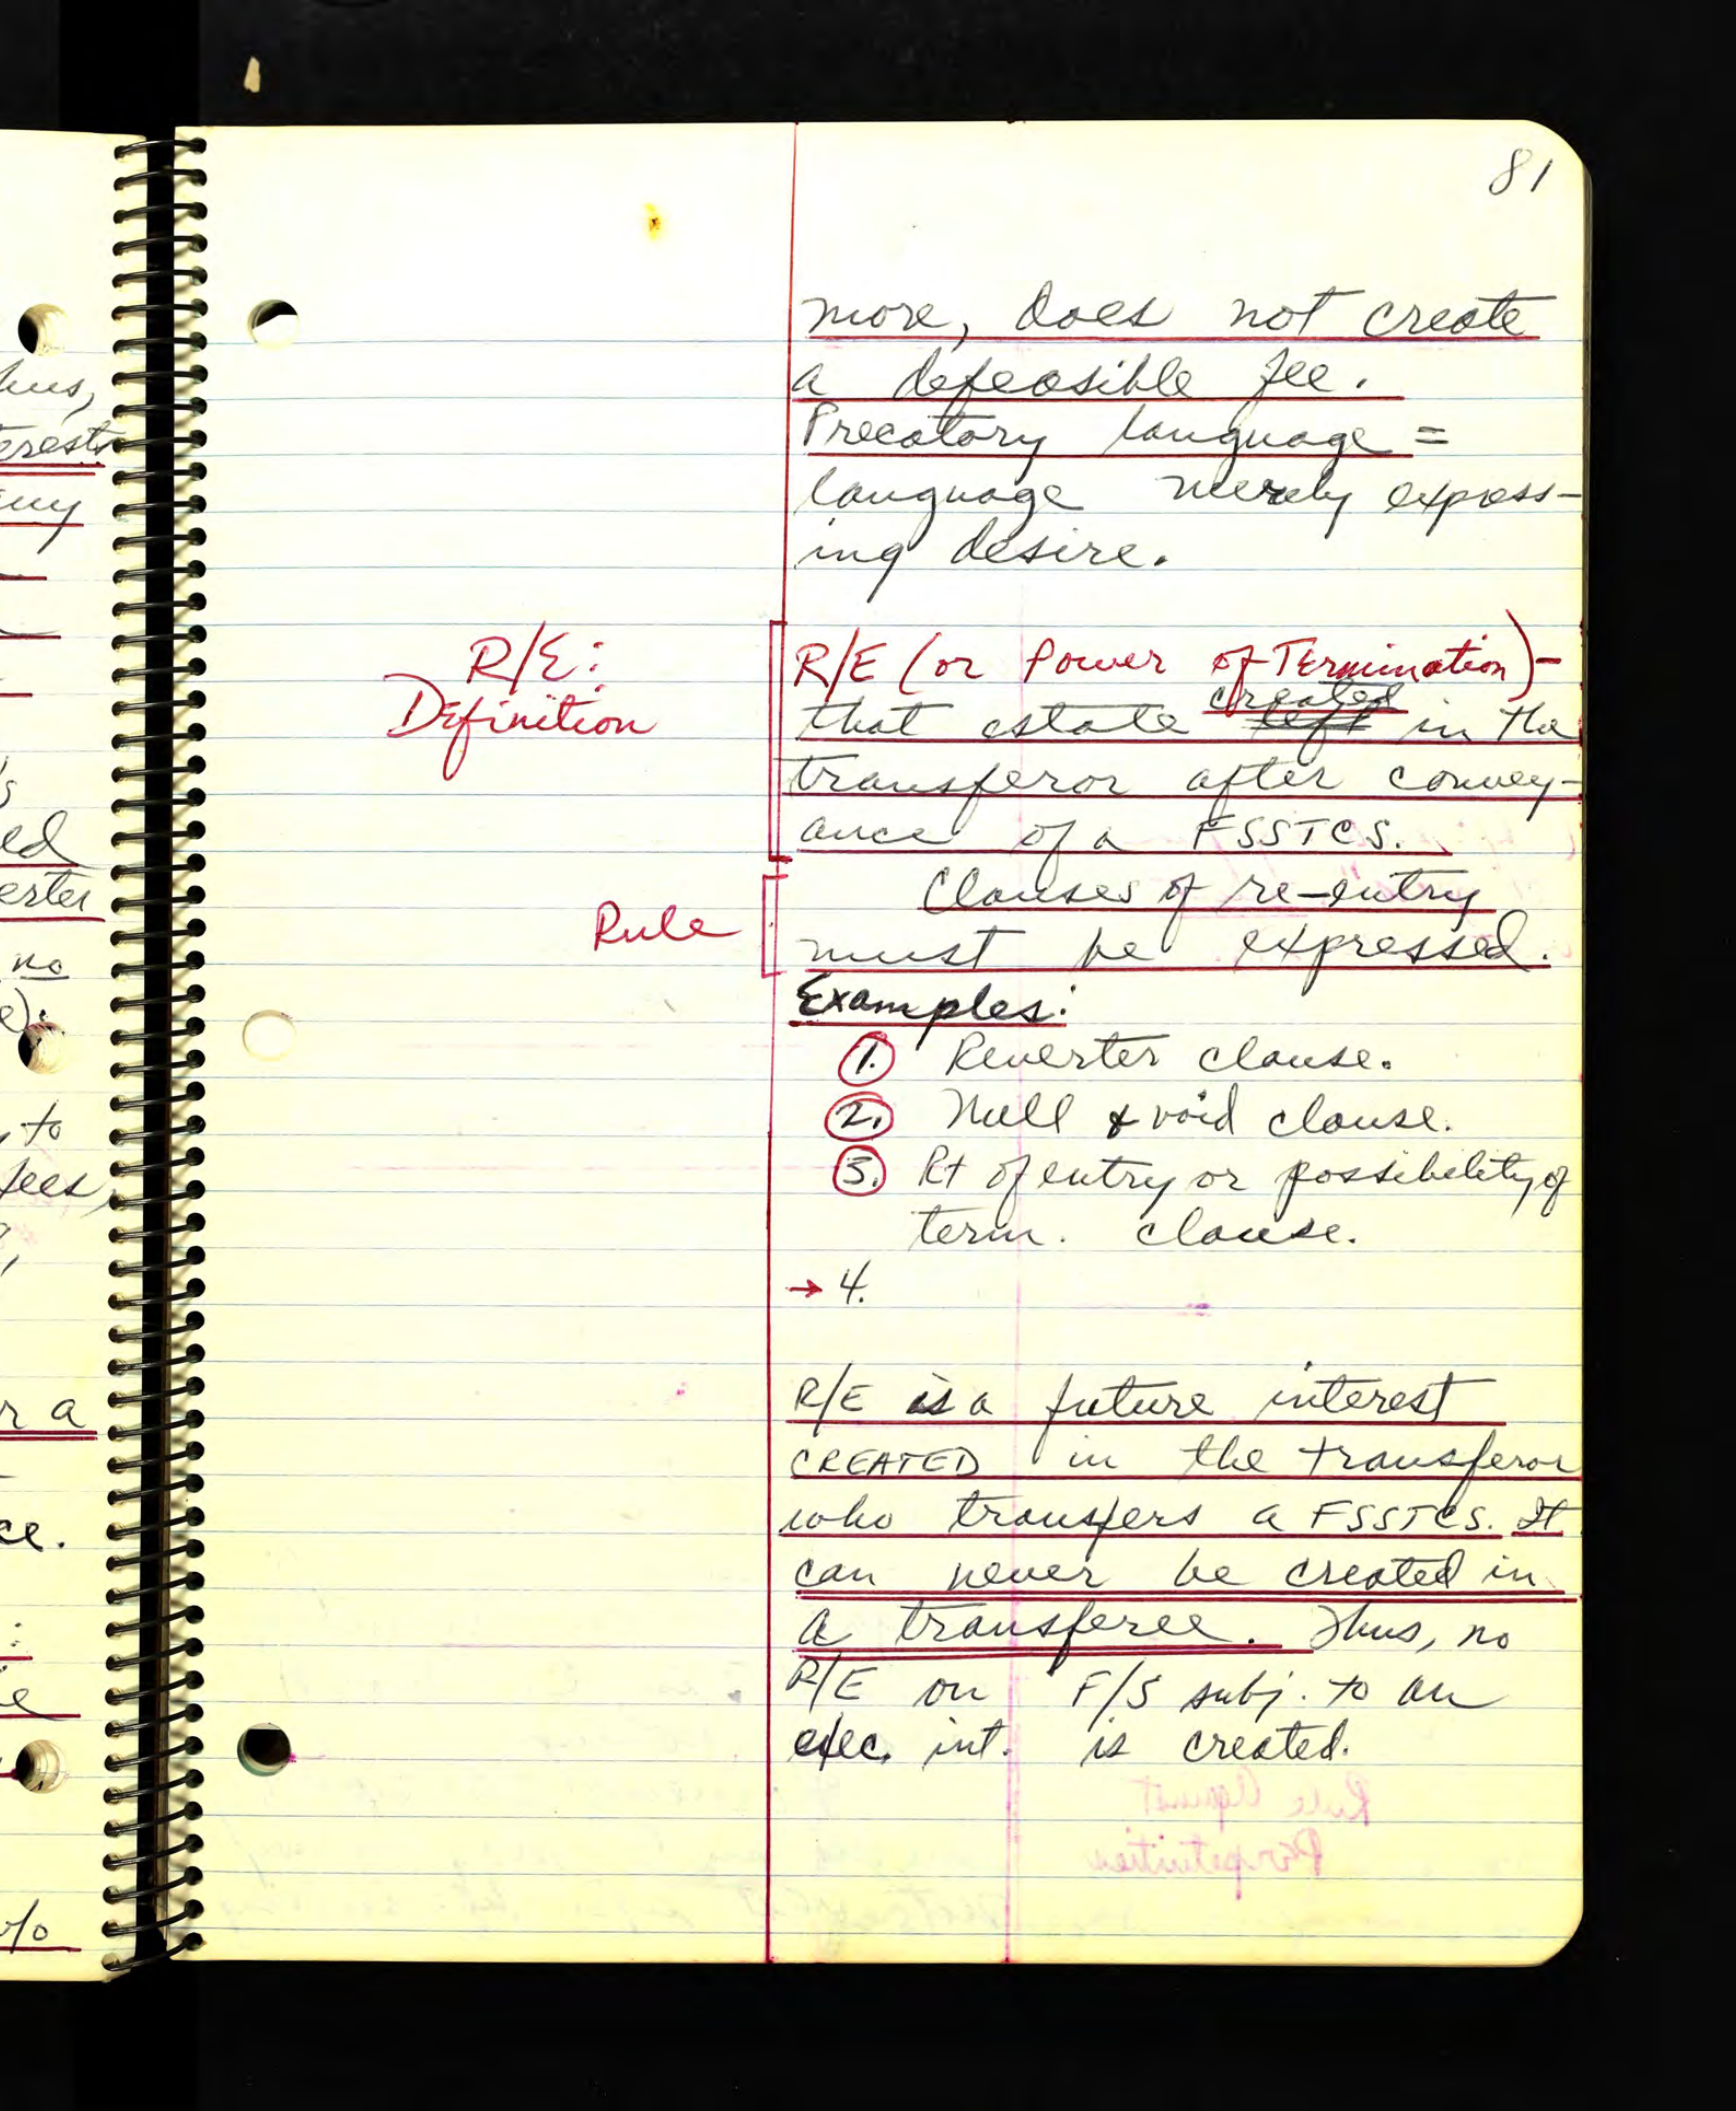 81
more, does not create
a defeasible fee.
Precatory language =
language merely express-
ing desire.
R/E:
Definition
R/E (or Power of Termination)-
that estate created left in the
transferor after convey-
ance of a FSSTCS.
Rule
Clauses of re-entry
must be expressed.
Examples:
1. Reverter clause.
2. Null & void clause.
3. Rt of entry or possibility of
term. clause.
→ 4.
R/E is a future interest
CREATED in the transferor
who transfers a FSSTCS. It
can never be created in
a transferee. Thus, no
R/E on F/S subj. to an
exec. int. is created.
Rule Against
Perpetuities
hus,
erests
ed
erter
no
to
fees,
r a
ce.
w/o